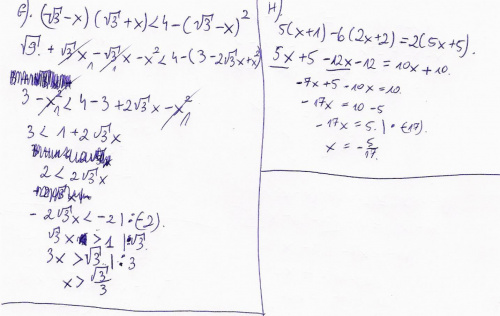 G). (√3-x)(√3+x)<4-(√3-x)²
√9 + √3x-√3x-x²<4-(3-2√3x+x²)
3-x²<4-3+2√3x-x²
3<1+2√3x
2<2√3x
-2√3x<-2 |:(-2).
√3x >1 |·√3
3x>√3 |:3
x>√3/3
H)
5(x+1)-6(2x+2)=2(5x+5).
5x+5-12x-12=10x+10.
-7x+5-10x=10.
-17x=10-5
-17x=5. |:(-17).
x=-5/17.